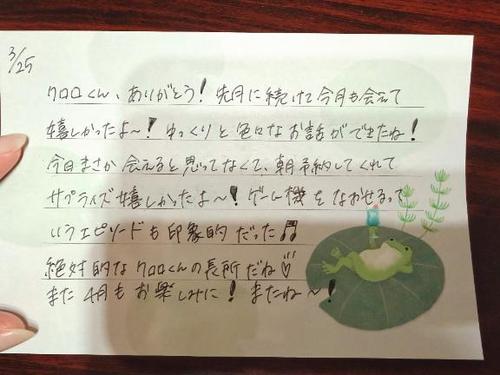 3/25
クロロくん、ありがとう！先月に続けて今月も会えて
嬉しかったよ〜！ゆっくりと色々なお話ができたね！
今日まさか会えると思ってなくて、朝予約してくれて
サプライズ嬉しかったよ〜！ゲーム機をなおせるって
いうエピソードも印象的だった♬
絶対的なクロロくんの長所だね♡
また4月もお楽しみに！またね〜！